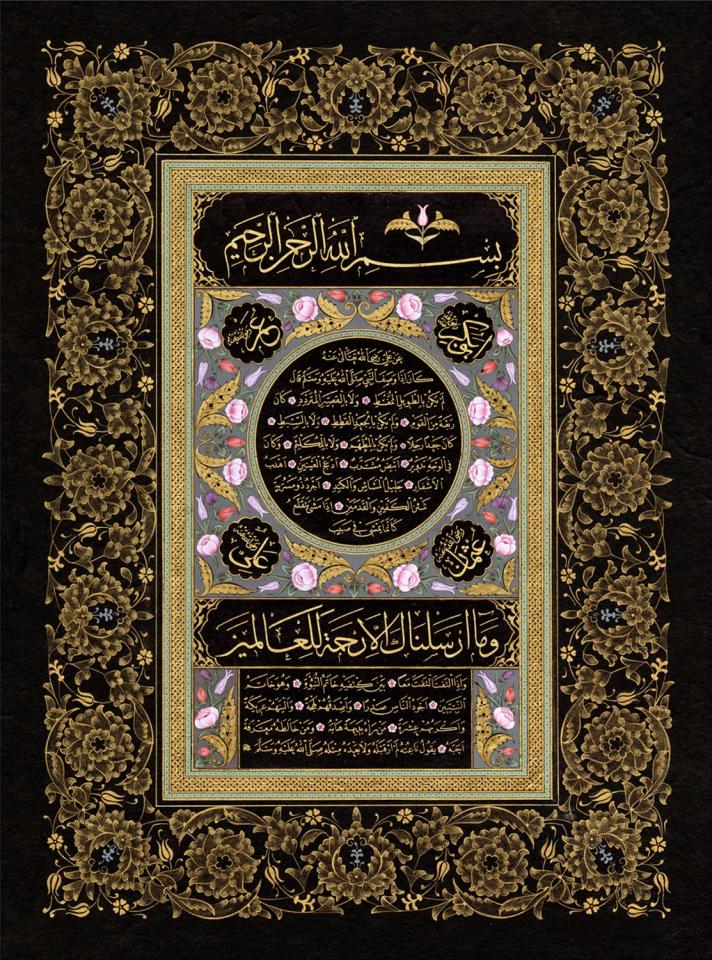 بسم الله الرحمن الرحيم
عمر
عن علي رضي الله تعالى عنه
كان اذا وصف النبي صلى الله عليه وسلم قال
لم يكن بالطويل الممغط ولا بالقصير المتردد كان
ربعة من القوم ولم يكن بالجعد القطط ولا بالسبط
كان جعدا رجلا ولم يكن بالمطهم ولا بالمكلثم وكان
في الوجه تدوير ابيض مشرب ادعج العينين اهدب
الاشفار جليل المشاش والكتد اجرد ذو مسربة
شثن الكفين والقدمين اذا مشى تقلع
كانما يمشي في صبب
عثمان
علي
وما ارسلناك الا رحمة للعالمين
واذا التفت التفت معا بين كتفيه خاتم النبوة وهو خاتم
النبيين اجود الناس صدرا واصدقهم لهجة والينهم عريكة
واكرمهم عشرة من رآه بديهة هابه ومن خالطه معرفة
احبه يقول ناعته لم ار قبله ولا بعده مثله صلى الله عليه وسلم